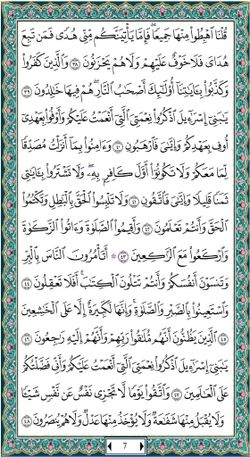 قُلْنَا ٱهْبِطُوا۟ مِنْهَا جَمِيعًا ۖ فَإِمَّا يَأْتِيَنَّكُم مِّنِّى هُدًى فَمَن تَبِعَ
هُدَاىَ فَلَا خَوْفٌ عَلَيْهِمْ وَلَا هُمْ يَحْزَنُونَ ٣٨ وَٱلَّذِينَ كَفَرُوا۟
وَكَذَّبُوا۟ بِـَٔايَـٰتِنَآ أُو۟لَـٰٓئِكَ أَصْحَـٰبُ ٱلنَّارِ ۖ هُمْ فِيهَا خَـٰلِدُونَ ٣٩
يَـٰبَنِىٓ إِسْرَٰٓءِيلَ ٱذْكُرُوا۟ نِعْمَتِىَ ٱلَّتِىٓ أَنْعَمْتُ عَلَيْكُمْ وَأَوْفُوا۟ بِعَهْدِىٓ
أُوفِ بِعَهْدِكُمْ وَإِيَّـٰىَ فَٱرْهَبُونِ ٤٠ وَءَامِنُوا۟ بِمَآ أَنزَلْتُ مُصَدِّقًا
لِّمَا مَعَكُمْ وَلَا تَكُونُوٓا۟ أَوَّلَ كَافِرٍۭ بِهِۦ ۖ وَلَا تَشْتَرُوا۟ بِـَٔايَـٰتِى
ثَمَنًا قَلِيلًا وَإِيَّـٰىَ فَٱتَّقُونِ ٤١ وَلَا تَلْبِسُوا۟ ٱلْحَقَّ بِٱلْبَـٰطِلِ وَتَكْتُمُوا۟
ٱلْحَقَّ وَأَنتُمْ تَعْلَمُونَ ٤٢ وَأَقِيمُوا۟ ٱلصَّلَوٰةَ وَءَاتُوا۟ ٱلزَّكَوٰةَ
وَٱرْكَعُوا۟ مَعَ ٱلرَّٰكِعِينَ ٤٣ ۞ أَتَأْمُرُونَ ٱلنَّاسَ بِٱلْبِرِّ
وَتَنسَوْنَ أَنفُسَكُمْ وَأَنتُمْ تَتْلُونَ ٱلْكِتَـٰبَ ۚ أَفَلَا تَعْقِلُونَ ٤٤
وَٱسْتَعِينُوا۟ بِٱلصَّبْرِ وَٱلصَّلَوٰةِ ۚ وَإِنَّهَا لَكَبِيرَةٌ إِلَّا عَلَى ٱلْخَـٰشِعِينَ
٤٥ ٱلَّذِينَ يَظُنُّونَ أَنَّهُم مُّلَـٰقُوا۟ رَبِّهِمْ وَأَنَّهُمْ إِلَيْهِ رَٰجِعُونَ ٤٦
يَـٰبَنِىٓ إِسْرَٰٓءِيلَ ٱذْكُرُوا۟ نِعْمَتِىَ ٱلَّتِىٓ أَنْعَمْتُ عَلَيْكُمْ وَأَنِّى فَضَّلْتُكُمْ
عَلَى ٱلْعَـٰلَمِينَ ٤٧ وَٱتَّقُوا۟ يَوْمًا لَّا تَجْزِى نَفْسٌ عَن نَّفْسٍ شَيْـًٔا
وَلَا يُقْبَلُ مِنْهَا شَفَـٰعَةٌ وَلَا يُؤْخَذُ مِنْهَا عَدْلٌ وَلَا هُمْ يُنصَرُونَ ٤٨
7